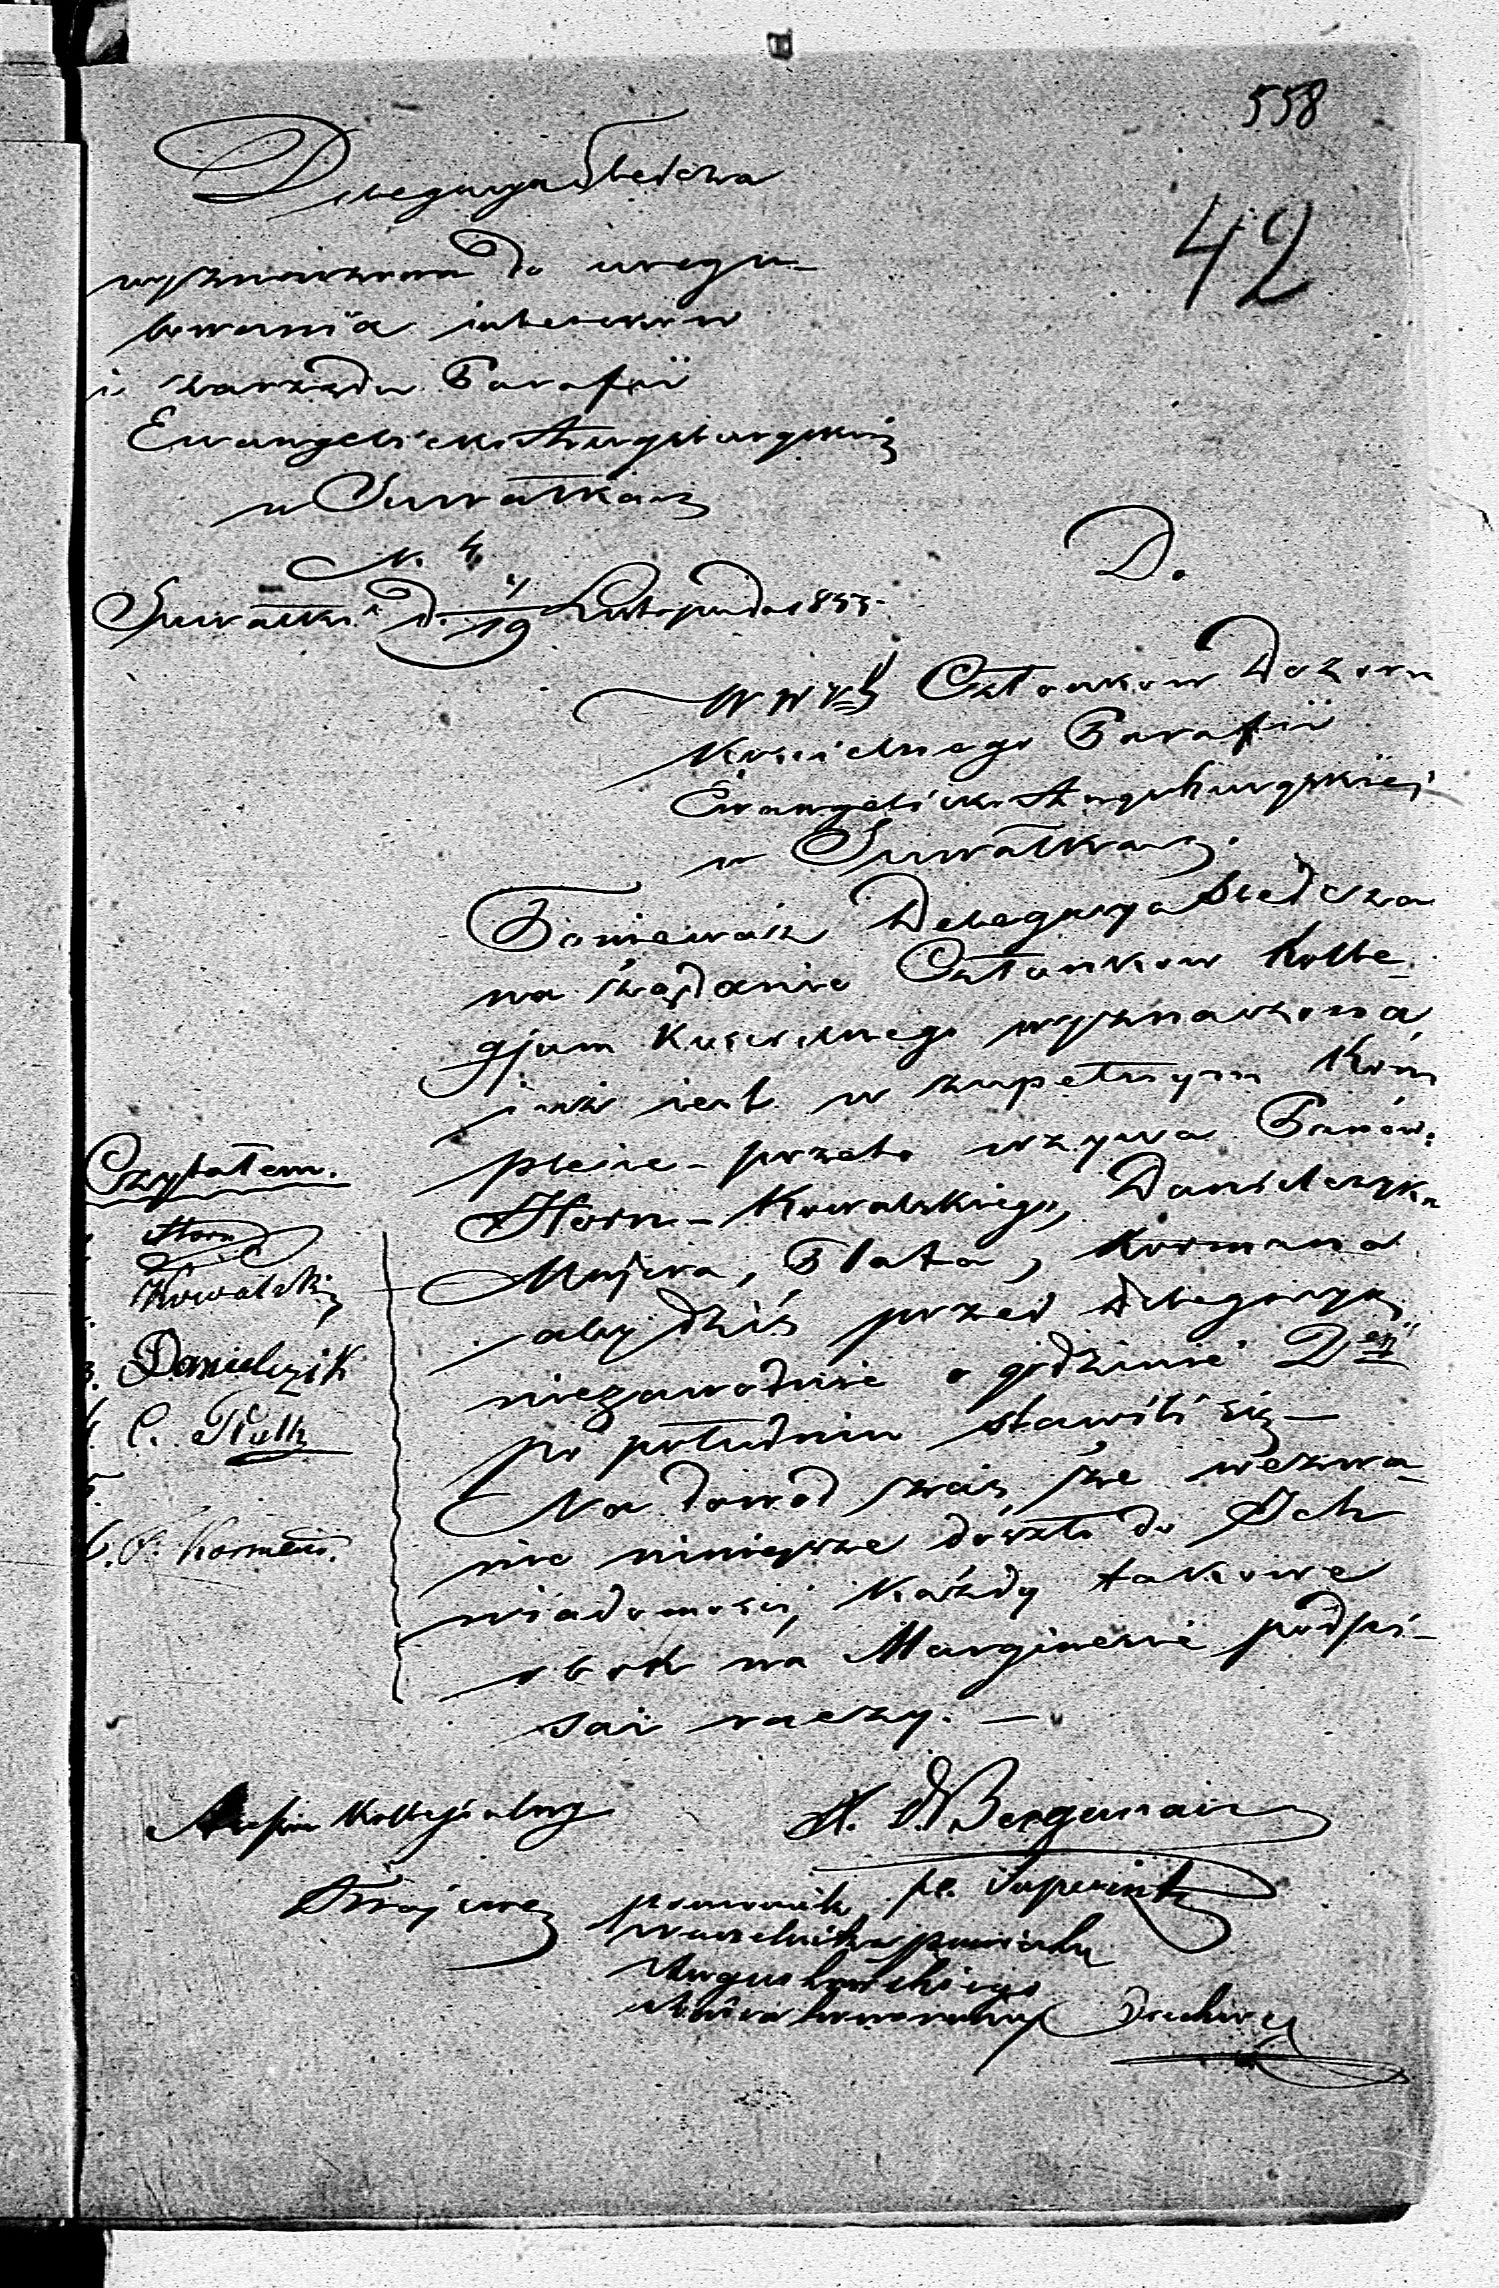 558
42
Delegacya Śledcza
wyznaczona do uregu-
lowania interessów
i Zarządu Parafii
Ewangelicko Augsburgskiej
w Suwałkach
N. 4
Suwałki d. 7/19 Listopada 1853.
Do
WWych Członków Dozoru
Kościelnego Parafii
Ewangelicko Augsburgskiej
w Suwałkach.
Ponieważ Delegacya Śledcza
na żądanie Członków Kolle-
gjum Kościelnego wyznaczona
już jest w zupełnym Kom
plecie - przeto wzywa Panów:
Horn - Kowalskiego, Danielczyka
Majera, Plata, Kormana
aby dziś przed Delegacyą
niezawodnie o godzinie 2ej
po południu stawili się -
Na dowód zaś, że wezwa-
nie niniejsze doszło do Ich
wiadomości, każdy takowe
obok na Marginesie podpi-
sać raczy. -
Czytałem.
Horn
Kowalski
3. Danielczik
4. C. Plath
5.
6. Korman.
Assesor Kollegialny
H. D. Bergemann
po. Superint.
pomocnik
Naczelnika powiatu
Augustowskiego
Radca honorowy